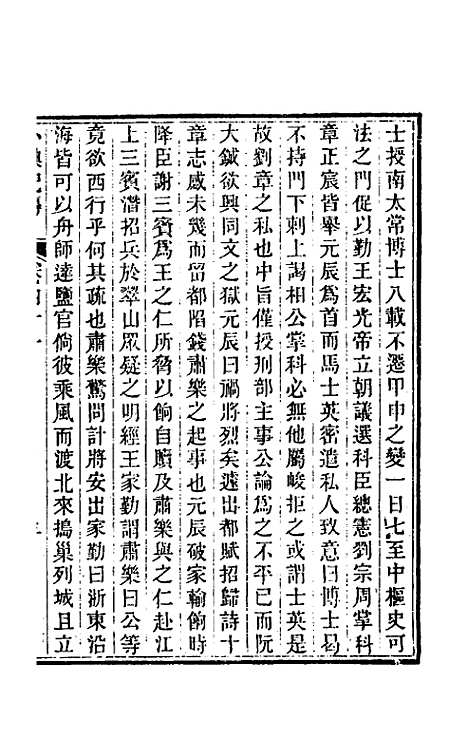 士授南太常博士八載不遷甲申之變一日七至中樞史可
法之門促以勤王宏光帝立朝議選科臣總憲劉宗周掌科
章正宸皆舉元辰爲首而馬士英密遣私人致意曰博士曷
不持門下刺上謁相公掌科必無他屬峻拒之或謂士英是
故劉章之私也中旨僅授刑部主事公論爲之不平已而阮
大鋮欲興同文之獄元辰曰禍將烈矣遽出都賦招歸詩十
章志感未幾而留都陷錢肅樂之起事也元辰破家輸餉時
降臣謝三賓爲王之仁所脅以餉自贖及肅樂與之仁赴江
上三賓潛招兵於翠山眾疑之明經王家勤謂肅樂曰公等
竟欲西行乎何其疏也肅樂驚問計將安出家勤曰浙東沿
海皆可以舟師達鹽官倘彼乘風而渡北來搗巢列城且立